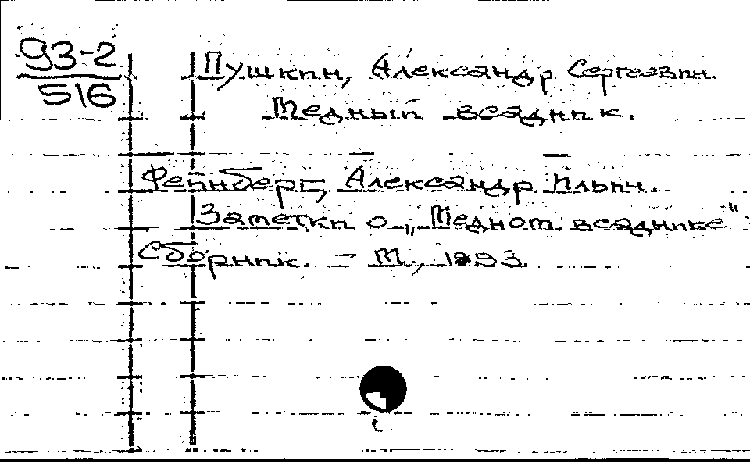 93-2
516
Пушкин, Александр Сергеевич.
Медный всадник.
Фейнберг, Александр Ильич.
Заметки о „Медном всаднике".
Сборник. - М., 1993